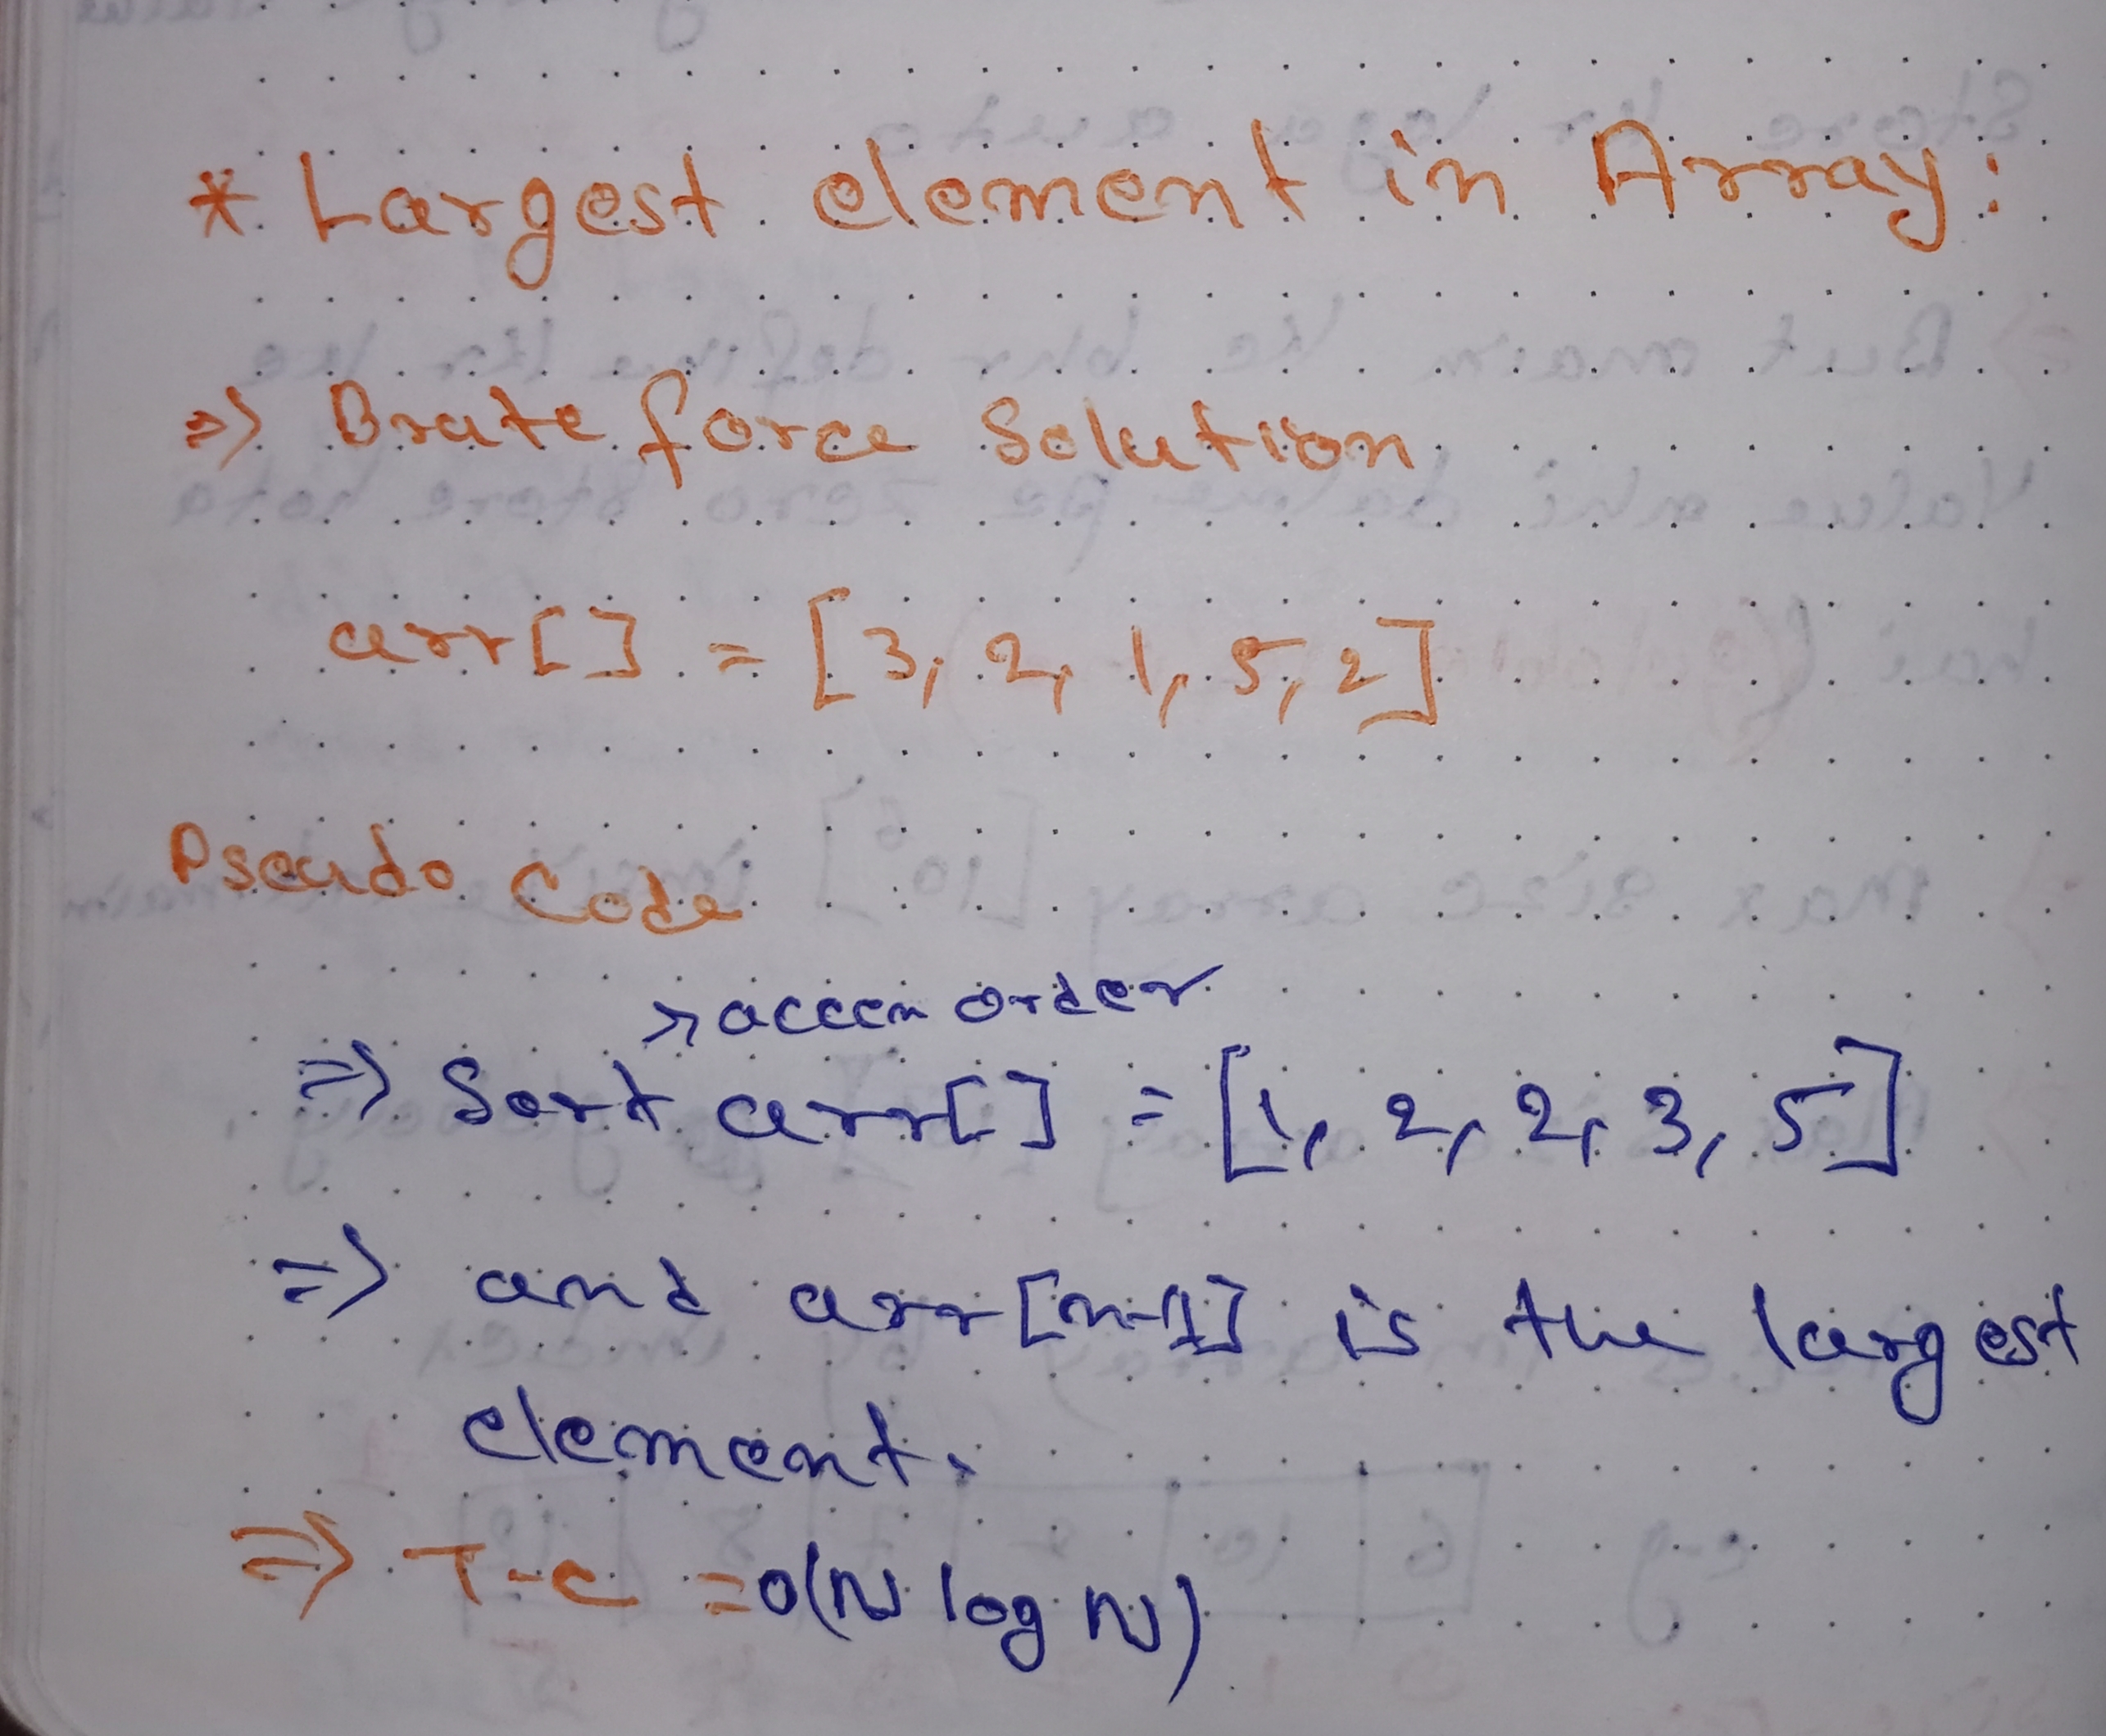 * Largest element in Array:
=> Brute force Solution
arr[] = [3, 2, 1, 5, 2]
Pseudo Code
→ accen order
=> Sort arr[] = [1, 2, 2, 3, 5]
=> and arr[n-1] is the largest
element.
=> T-C = O(N log N)